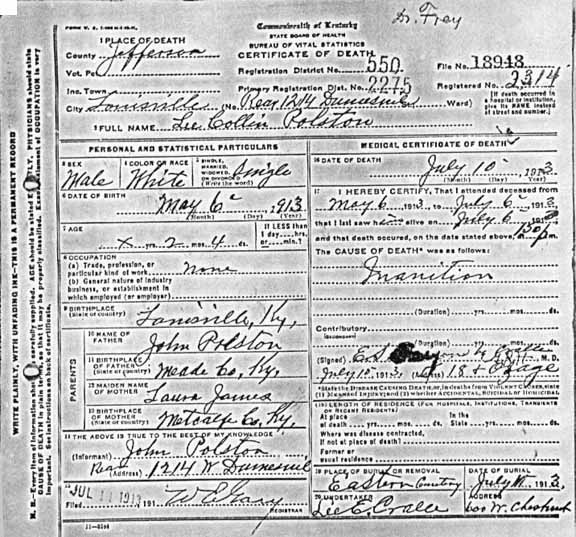 Dr. Frey
FORM V. S. No.
Commonwealth of Kentucky
STATE BOARD OF HEALTH
BUREAU OF VITAL STATISTICS
CERTIFICATE OF DEATH
1 PLACE OF DEATH
County Jefferson
Vot. Pc
Registration District No. 550
File No. 18948
Inc. Town
Primary Registration Dist. No. 2275
Registered No. 2314
City Louisville (No. Rear 1214 Dumesnil Ward)
[If death occurred in a hospital or institution, give its NAME instead of street and number.]
2 FULL NAME Lee Collin Polston
PERSONAL AND STATISTICAL PARTICULARS
3 SEX
Male
4 COLOR OR RACE
White
5 SINGLE, MARRIED, WIDOWED, OR DIVORCED (Write the word)
Single
6 DATE OF BIRTH
May 6 1913
(Month) (Day) (Year)
7 AGE
x yrs. 2 mos. 4 ds.
If LESS than 1 day....hrs. or....min.?
8 OCCUPATION
(a) Trade, profession, or particular kind of work None
(b) General nature of industry business, or establishment in which employed (or employer)
9 BIRTHPLACE
(State or country) Louisville, Ky,
PARENTS
10 NAME OF FATHER John Polston
11 BIRTHPLACE OF FATHER (State or country) Meade Co, Ky,
12 MAIDEN NAME OF MOTHER Laura James
13 BIRTHPLACE OF MOTHER (State or country) Metcalfe Co, Ky,
14 THE ABOVE IS TRUE TO THE BEST OF MY KNOWLEDGE
(Informant) John Polston
(Address) Rear 1214 W Dumesnil
15 JUL 11 1913
Filed 191
REGISTRAR
MEDICAL CERTIFICATE OF DEATH
16 DATE OF DEATH
July 10 1913
(Month) (Day) (Year)
17 I HEREBY CERTIFY, That I attended deceased from
May 6 1913 to July 6 1913
that I last saw him alive on July 6 191
and that death occured, on the date stated above, at 130 P.m.
The CAUSE OF DEATH* was as follows:
Inanition
(Duration) yrs. mos. ds.
Contributory
(SECONDARY)
(Duration) yrs. mos. ds.
(Signed) M. D.
July 10 1913 (Address) 18 & Osage
*State the DISEASE CAUSING DEATH, or, in deaths from VIOLENT CAUSES, state (1) MEANS OF INJURY; and (2) whether ACCIDENTAL, SUICIDAL or HOMICIDAL
18 LENGTH OF RESIDENCE (FOR HOSPITALS, INSTITUTIONS, TRANSIENTS OR RECENT RESIDENTS)
At place of death yrs. mos. ds. In the State yrs. mos. ds.
Where was disease contracted, if not at place of death?
Former or usual residence
19 PLACE OF BURIAL OR REMOVAL
Eastern Cemetery
DATE OF BURIAL
July 11 1913
20 UNDERTAKER
Lee E. Cralle
ADDRESS
600 W. Chestnut
11-3184
WRITE PLAINLY, WITH UNFADING INK—THIS IS A PERMANENT RECORD
N. B.—Every item of information should be carefully supplied. AGE should be stated EXACTLY. PHYSICIANS should state
CAUSE OF DEATH in plain terms, so that it may be properly classified. Exact statement of OCCUPATION is very
important. See instructions on back of certificate.